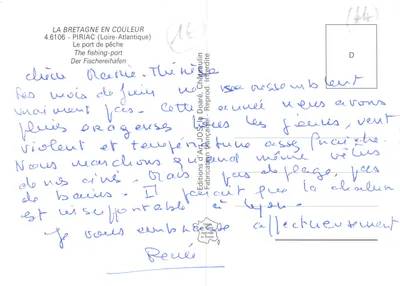 LA BRETAGNE EN COULEUR
4.6106 - PIRIAC (Loire-Atlantique)
Le port de pêche
The fishing-port
Der Fischereihafen
1€
(44)
D
Chère Marie-Thérèse
Les mois de Juin ne se ressemblent
vraiment pas. Cette année nous avons
pluies orageuses tous les jours, vent
violent et température assez fraîche.
Nous marchons quand même vêtus
de nos cirés. Mais pas de plage, pas
de bains. Il paraît que la chaleur
est insupportable à Lyon.
Je vous embrasse affectueusement
Renée
Editions d'Art JOS le Doaré, Châteaulin
Fabrication Française Reprod. Interdite